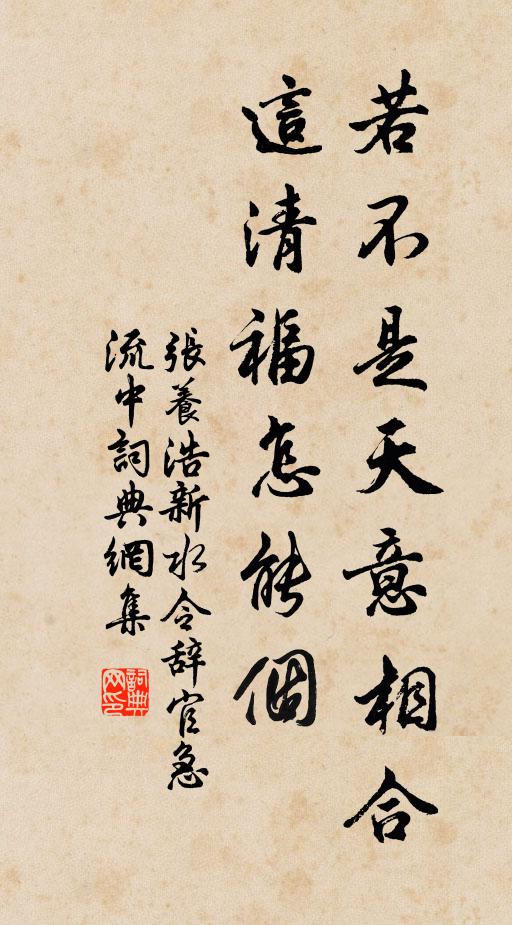 若不是天意相合
這清福怎能個
張養浩新水令辞官急
流中詞典網集
詞典
网印